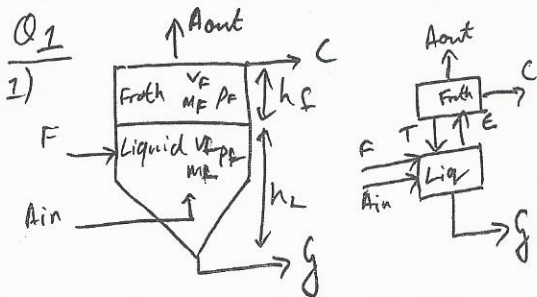 Q1
1)
Aout
C
Froth VF
MF ρF
hf
F
Liquid VL ρL
ML
Ain
hL
G
Aout
C
Froth
T
E
F
Ain
Liq
G